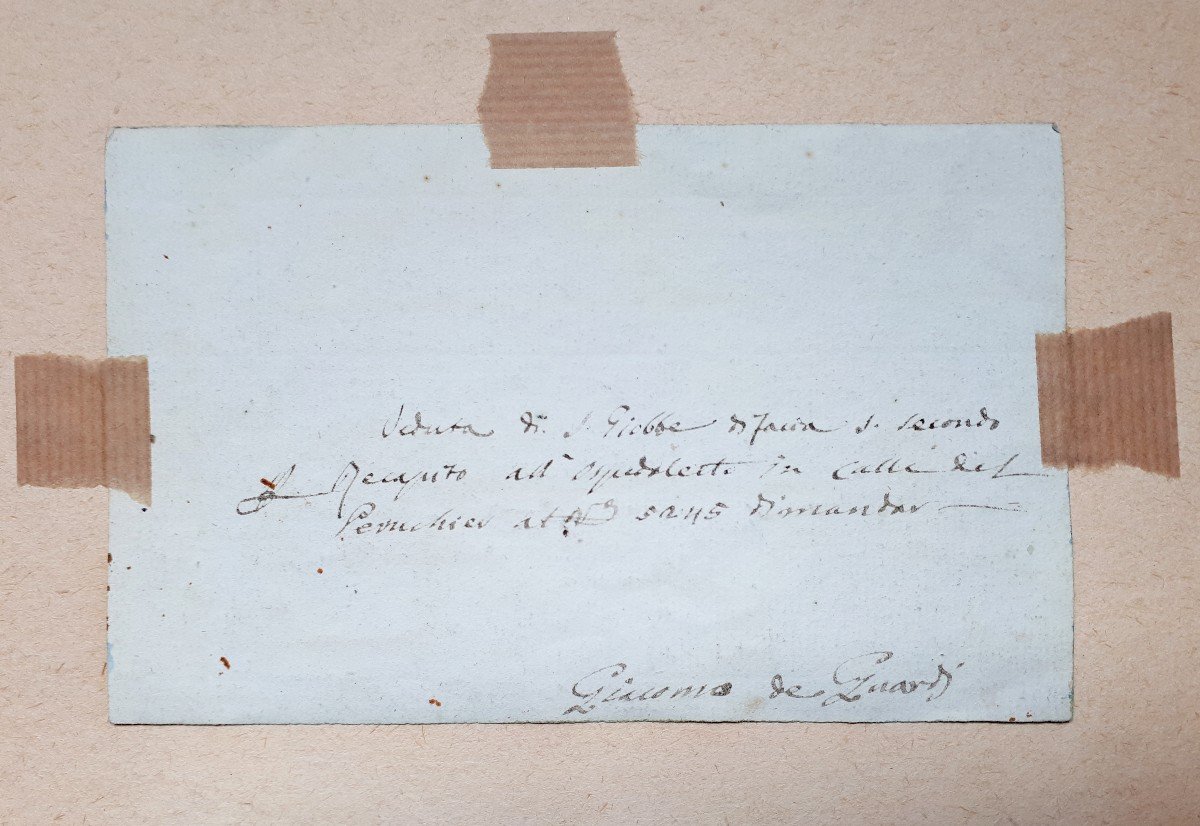 Veduta di S. Giobbe di facia S. Secondo
Recapito all' Ospedaletto in Calle del
Peruchier al No 5245 dimandar
Giacomo de Guardi